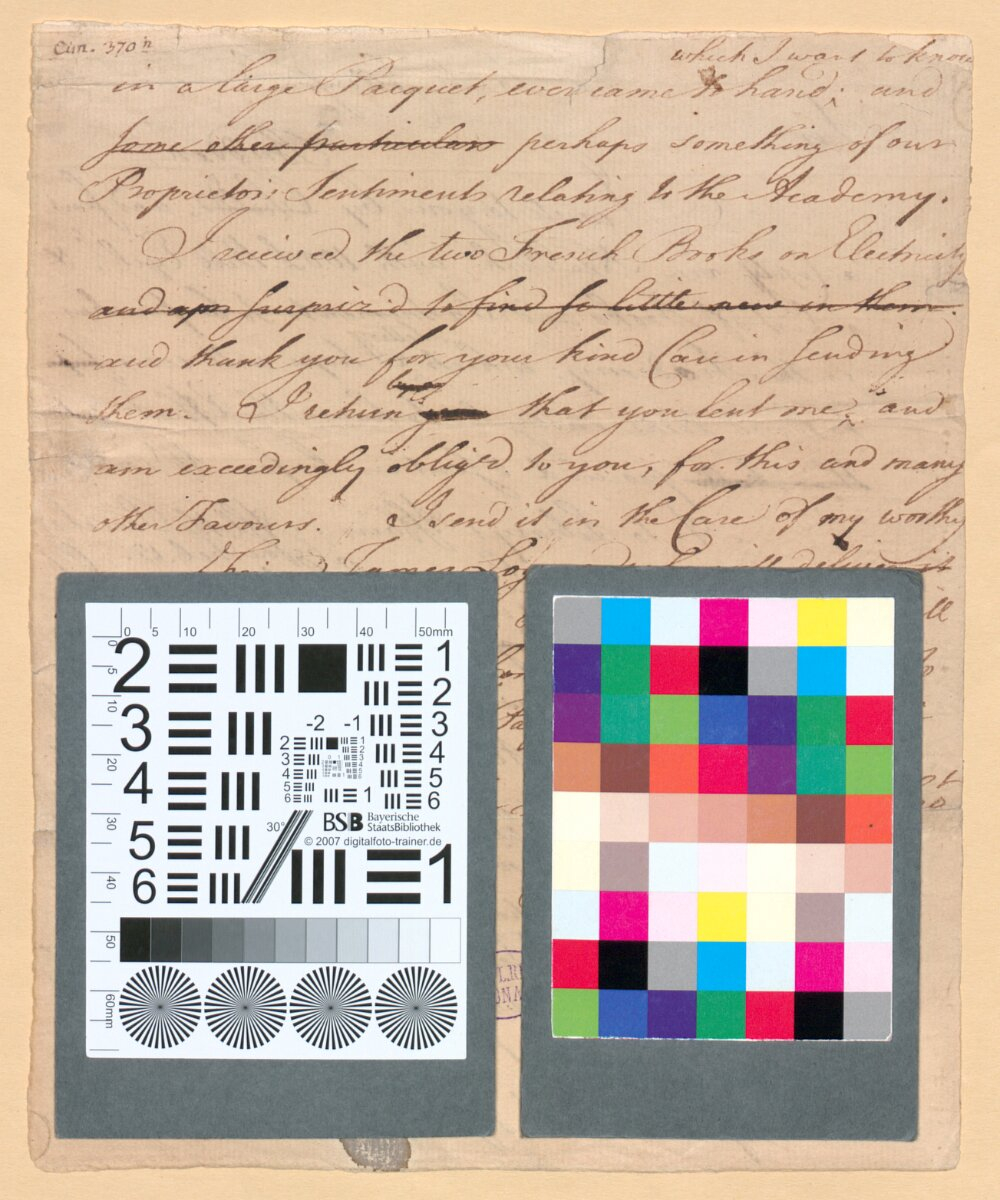 Cim. 370 n
which I want to know
in a large Pacquet, ever came to hand; and
some other particulars perhaps something of our
Proprietors Sentiments relating to the Academy.
I receiv'd the two French Books on Electricity
and am surpriz'd to find so little new in them.
and thank you for your kind Care in sending
them. I return that you lent me, and
am exceedingly oblig'd to you, for this and many
other Favours. I send it in the Care of my worthy
James deliver it
0 5 10 20 30 40 50mm
0 5 10 20 30 40 50 60mm
2 3 4 5 6
1 2 3 4 5 6
-2 -1
2 3 4 5 6
1 2 3 4 5 6
1
30°
BSB Bayerische
StaatsBibliothek
© 2007 digitalfoto-trainer.de
1